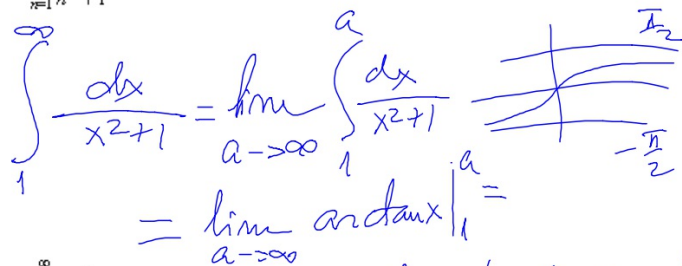 n=1 n + 1
∫₁^∞ dx/(x²+1) = lim a->∞ ∫₁^a dx/(x²+1)
π/2
-π/2
= lim a->∞ arctanx |₁^a =
∞